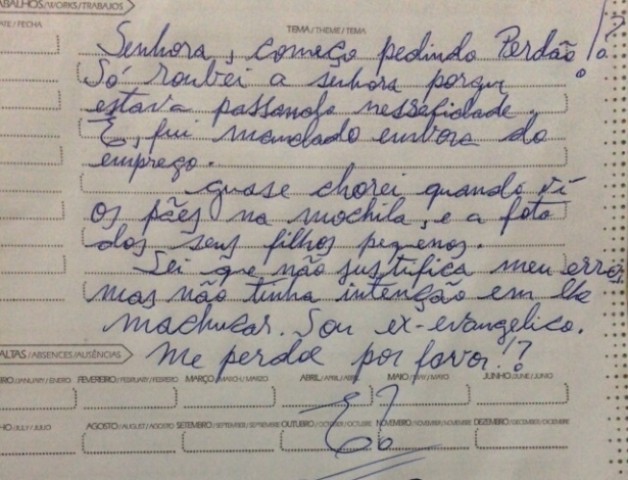 ABALHOS/WORKS/TRABAJOS
ATE/FECHA
TEMA/THEME/TEMA
Senhora, começo pedindo Perdão!
Só roubei a senhora porque
estava passando nessesidade.
E, fui mandado embora do
emprego.
quase chorei quando vi
os pães na mochila, e a foto
dos seus filhos pequenos.
Sei que não justifica meu erro,
mas não tinha intenção em lhe
machucar. Sou ex-evangelico.
Me perdoe por favor!?
ALTAS/ABSENCES/AUSÊNCIAS
RO/JANUARY/ENERO FEVEREIRO/FEBRUARY/FEBRERO MARÇO/MARCH/MARZO ABRIL/APRIL/ABRIL MAIO/MAY/MAYO JUNHO/JUNE/JUNIO
HO/JULY/JULIO AGOSTO/AUGUST/AGOSTO SETEMBRO/SEPTEMBER/SEPTIEMBRE OUTUBRO/OCTOBER/OCTUBRE NOVEMBRO/NOVEMBER/NOVIEMBRE DEZEMBRO/DECEMBER/DICIEMBRE